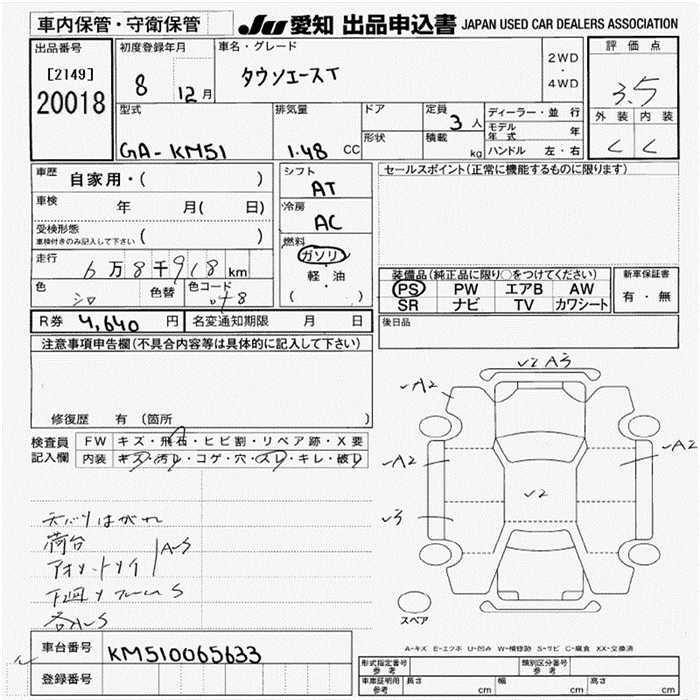 車内保管・守衛保管
JU 愛知 出品申込書 JAPAN USED CAR DEALERS ASSOCIATION
出品番号
[2149]
20018
初度登録年月
8 12月
車名・グレード
タウンエースT
2WD
・
4WD
評価点
3.5
外装 内装
く く
型式
GA-KM51
排気量
1.48 CC
ドア
形状
定員
3人
積載
kg
ディーラー・並行
モデル年式 年
ハンドル 左・右
車歴 自家用・( )
車検 年 月( 日)
受検形態
車検付きのみ記入して下さい ( )
走行 6万8千918km
色 シロ 色替 色コード
R券 4,640 円 名変通知期限 月 日
シフト
AT
冷房
AC
燃料
ガソリ
・
軽・油
( )
セールスポイント(正常に機能するものに限ります)
装備品(純正品に限り○をつけてください) 新車保証書
PS PW エアB AW 有・無
SR ナビ TV カワシート
後日品
注意事項申告欄(不具合内容等は具体的に記入して下さい)
修復歴 有 (箇所
検査員記入欄
FW キズ・飛石・ヒビ割・リペア跡・X要
内装 キズ・汚レ・コゲ・穴・スレ・キレ・破レ
荷台
A-S
下廻り フレーム S
✓2 A3
✓A2
✓A2
✓A2
✓2
✓3
スペア
A-キズ E-エクボ U-凹み W-補修跡 S-サビ C-腐食 XX-交換済
車台番号 KM510065633
登録番号
形式指定番号 参考
類別区分番号 参考
車庫証明用 参考 長さ cm 幅 cm 高さ cm